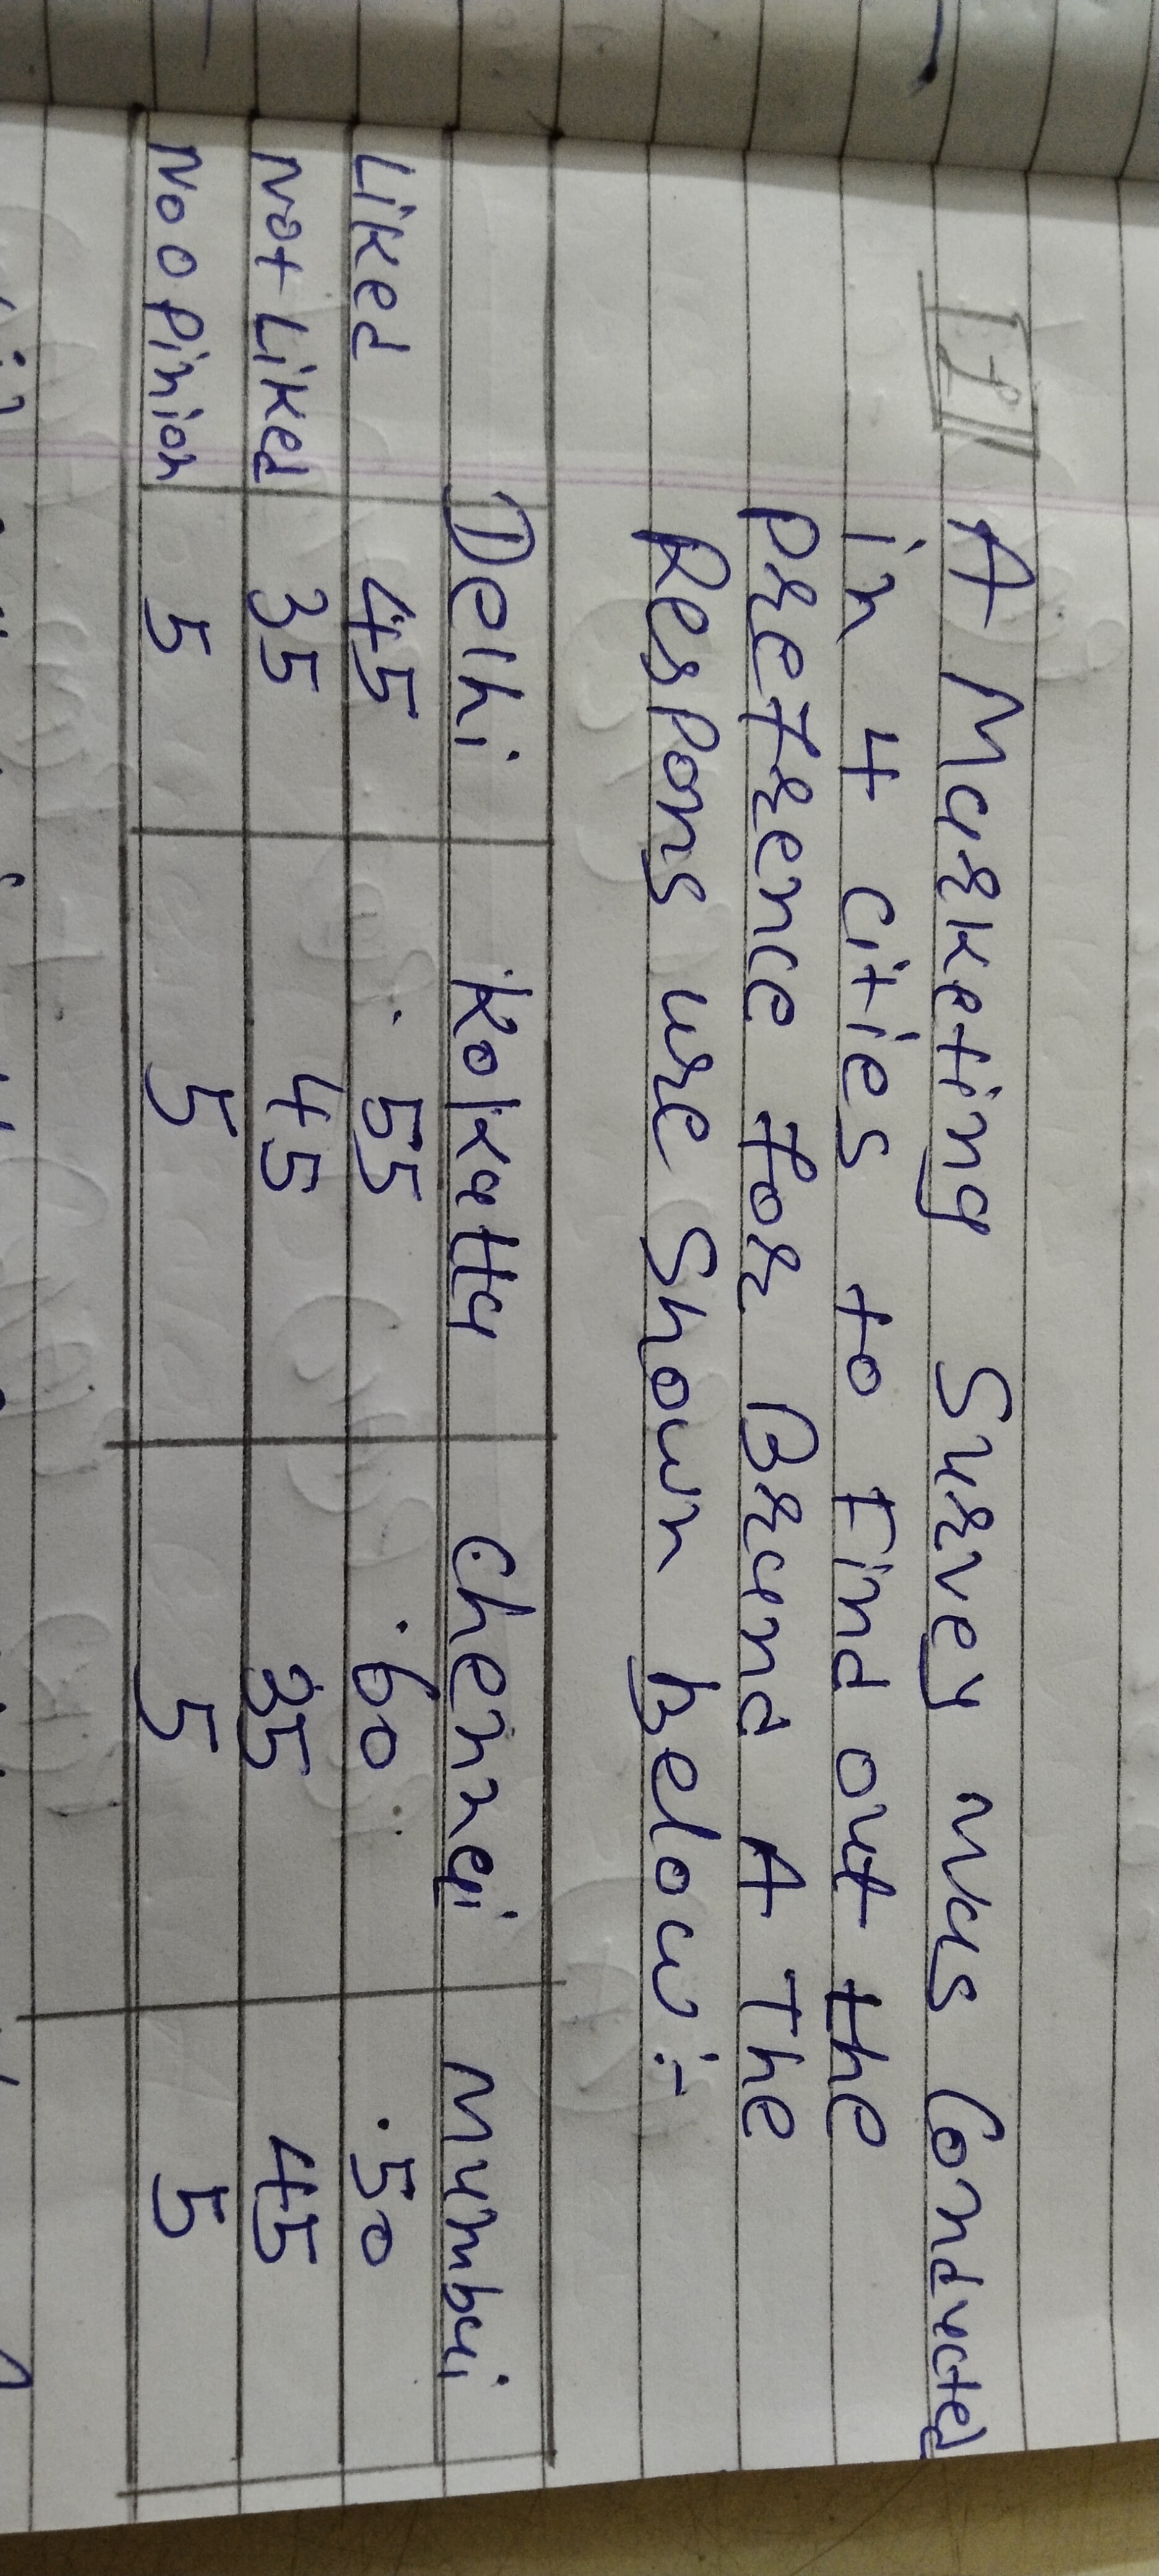 II
A Marketing Survey was Conducted
in 4 cities to Find out the
prefrence for Brand A The
Respons are Shown below :-
Delhi Kolkatta chennai mumbai
Liked 45 55 60 50
Not Liked 35 45 35 45
No opinion 5 5 5 5